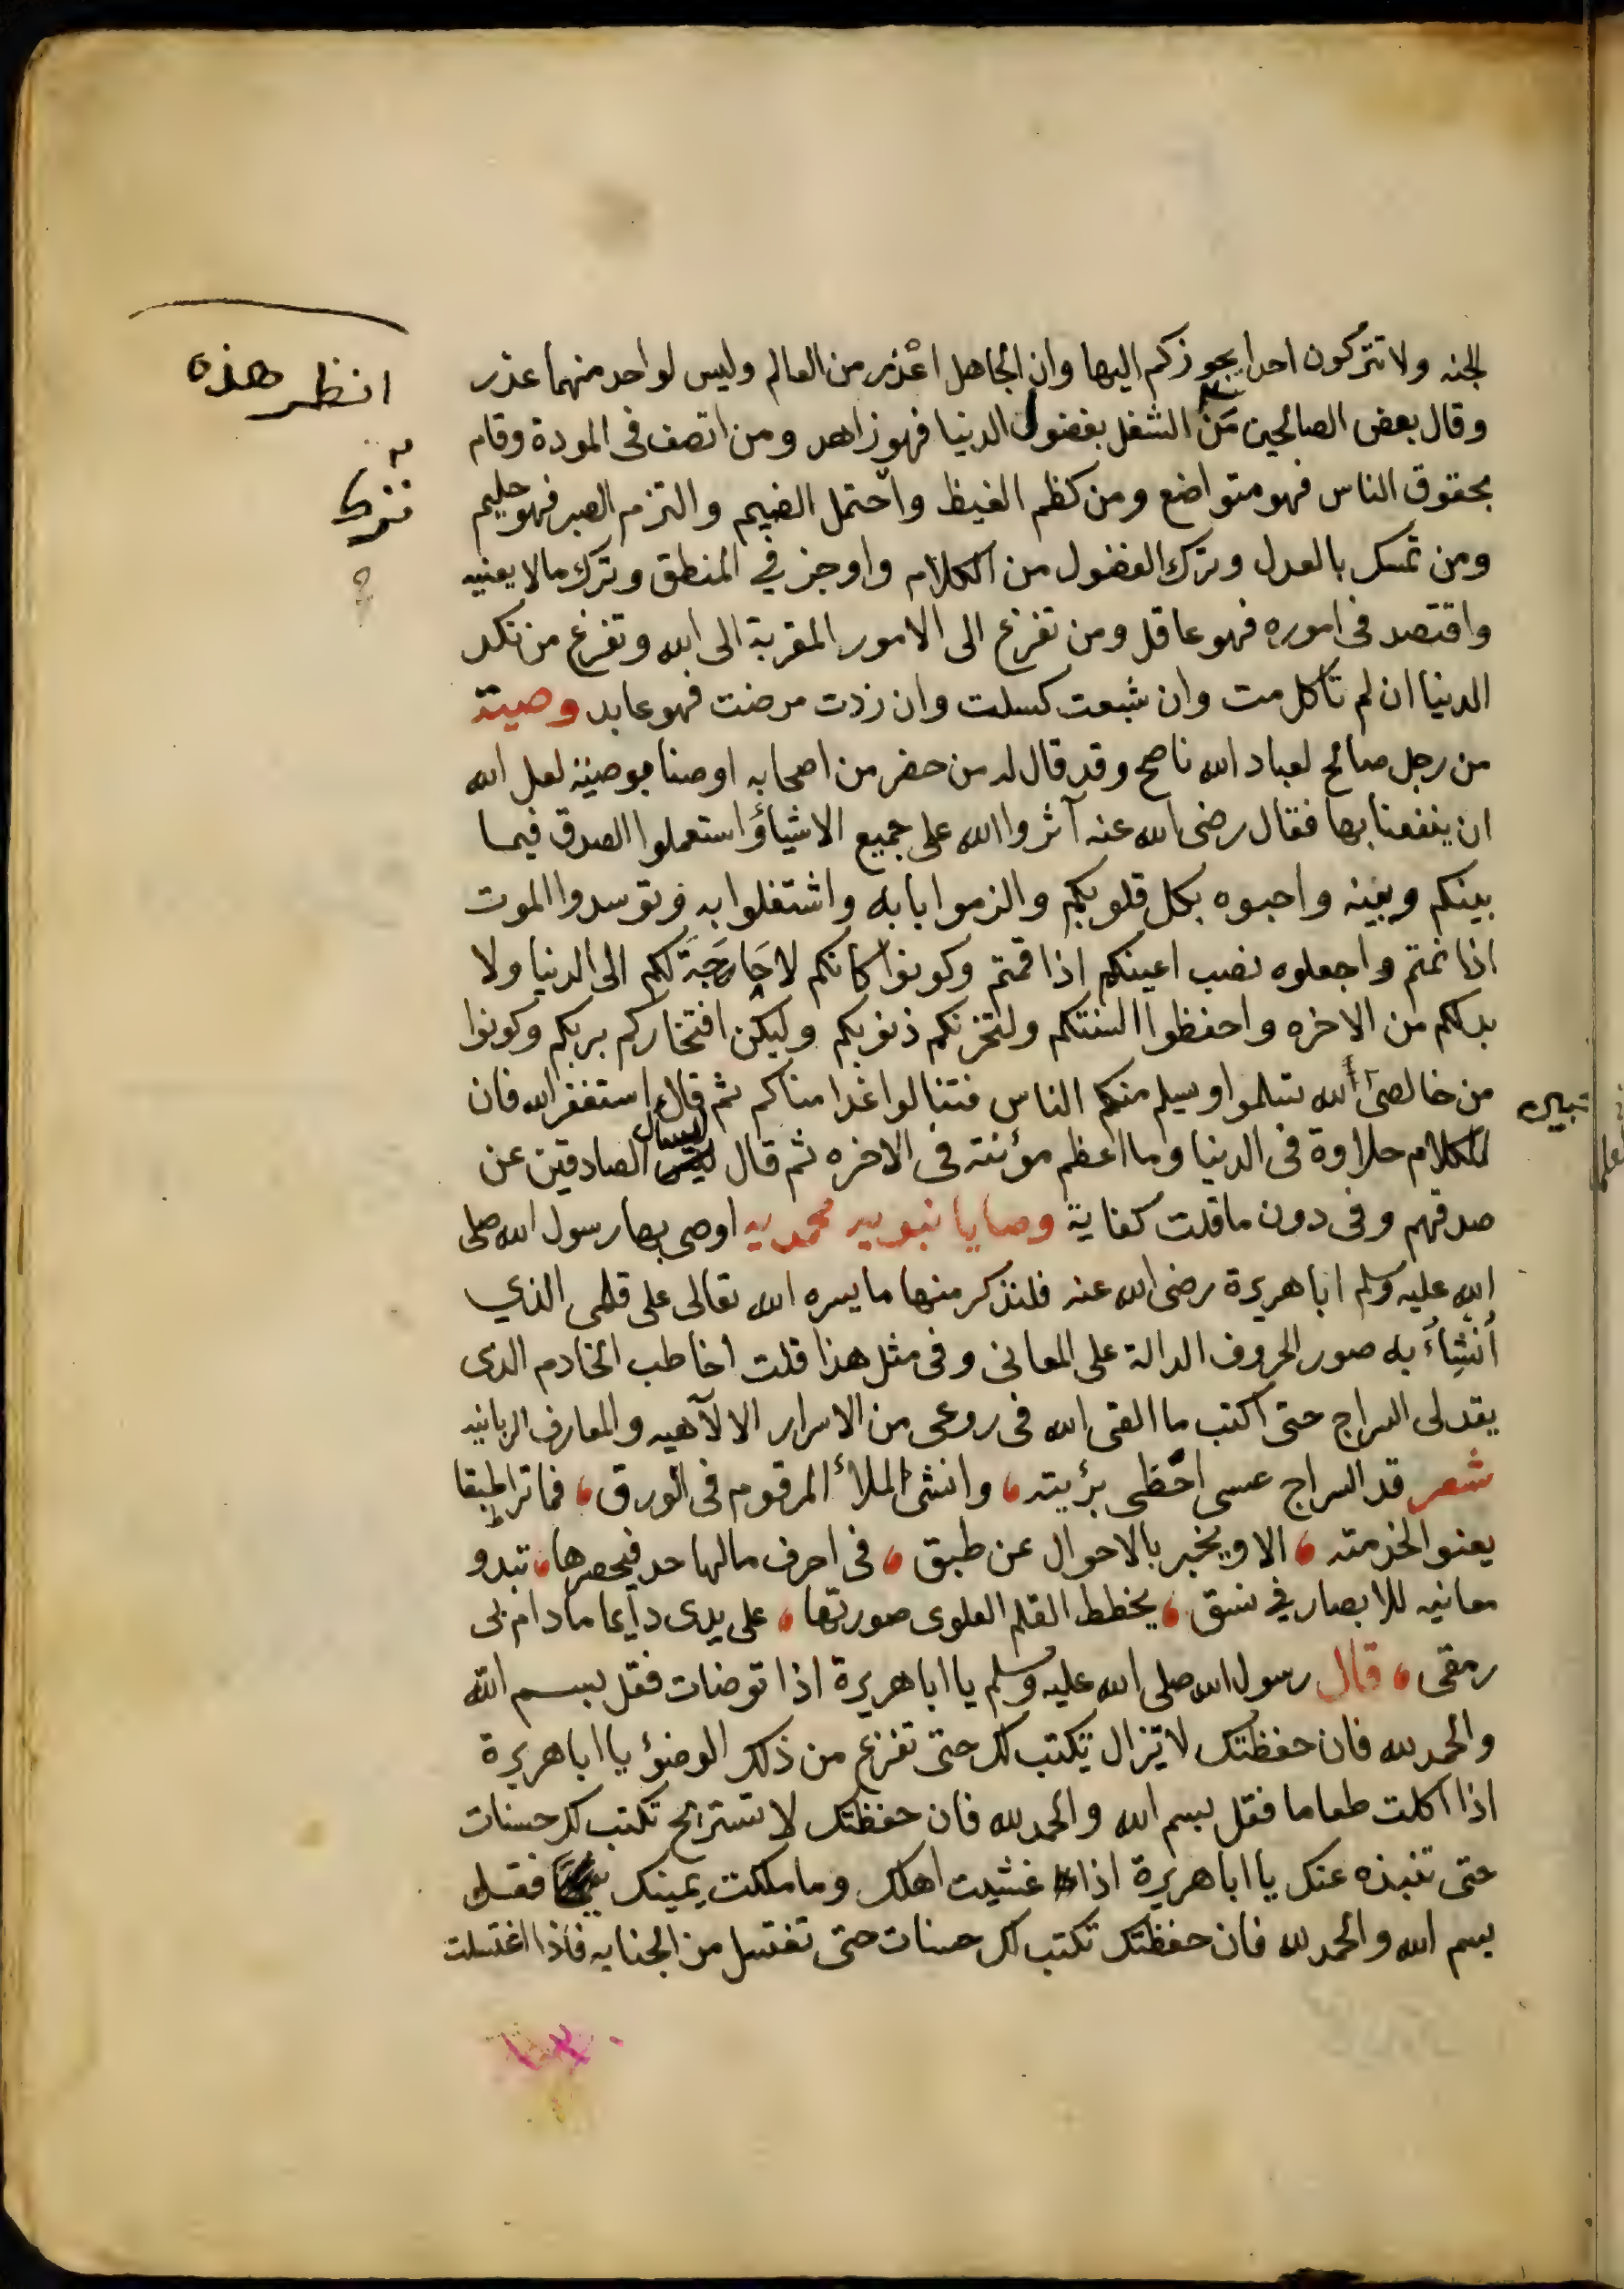 الجنه ولا تتركون احدا يجوزكم اليها وان الجاهل اعذر من العالم وليس لواحد منهما عذر
وقال بعض الصالحين مَن الشغل بفضول الدنيا فهو زاهد ومن اتصف فى المودة وقام
بحقوق الناس فهو متواضع ومن كظم الغيظ واحتمل الضيم والتزم الصبر فهو حليم
ومن تمسك بالعدل وترك الفضول من الكلام واوجز في المنطق وترك مالا يعنيه
واقتصد فى اموره فهو عاقل ومن تفرغ الى الامور المقربة الى الله وتفرغ من نكد
الدنيا ان لم تأكل مت وان شبعت كسلت وان زدت مرضت فهو عابد وصية
من رجل صالح لعباد الله ناصح وقد قال له من حضر من اصحابه اوصنا بوصية لعل الله
ان ينفعنا بها فقال رضى الله عنه آثروا الله على جميع الاشياؤ استعملوا الصدق فيما
بينكم وبينه واحبوه بكل قلوبكم والزموا بابه واشتغلوا به وتوسدوا الموت
اذا نمتم واجعلوه نصب اعينكم اذا قمتم وكونوا كانكم لا حَاجَة لكم الى الدنيا ولا
بدلكم من الاخره واحفظوا السنتكم ولتحزنكم ذنوبكم وليكن افتخاركم بربكم وكونوا
من خالصى الله تسلموا ويسلم منكم الناس فتنالوا غدا مناكم ثم قال استغفر الله فان
للكلام حلاوة فى الدنيا وما اعظم مؤنته فى الاخره ثم قال ليسال الصادقين عن
صدقهم وفى دون ما قلت كفاية وصايا نبويه محمديه اوصى بها رسول الله صلى
الله عليه وسلم ابا هريرة رضى الله عنه فلنذكر منها ما يسره الله تعالى على قلمى الذي
أنشِأُ به صور الحروف الدالة على المعانى وفى مثل هذا قلت اخاطب الخادم الذى
يقد لى السراج حتى اكتب ما القى الله فى روعى من الاسرار الالآهيه والمعارف الربانيه
شعر قد السراج عسى احْظى برؤيته، وانشئ الملأ المرقوم فى الورق، فما ترا طبقا
يعنوا لخدمته، الا ويخبر بالاحوال عن طبق، فى احرف مالها حد فيحصرها، تبدو
معانيه للابصار في نسق، يخطط القلم العلوى صورتها، على يدى دايما مادام بى
رمقى، قال رسول الله صلى الله عليه وسلم يا ابا هريرة اذا توضات فقل بسم الله
والحمد لله فان حفظتك لا تزال تكتب لك حتى تفرغ من ذلك الوضؤ يا ابا هريرة
اذا اكلت طعاما فقل بسم الله والحمد لله فان حفظتك لا تستريح تكتب لك حسنات
حتى تنبذه عنك يا ابا هريرة اذا غشيت اهلك وما ملكت يمينك فقل
بسم الله والحمد لله فان حفظتك تكتب لك حسنات حتى تغتسل من الجنابه فاذا اغتسلت
انظر هذه